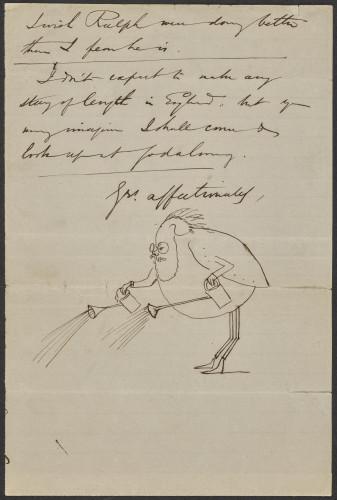 I wish Ralph were doing better
than I fear he is.
I don't expect to make any
stay of length in England, but you
may imagine I shall come &
look up at Godalming.
Yrs. affectionately,